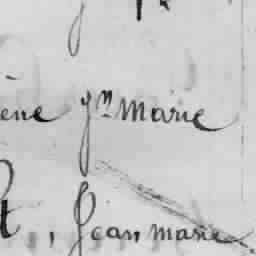 ène Jⁿ Marie
t, Jean, marie.